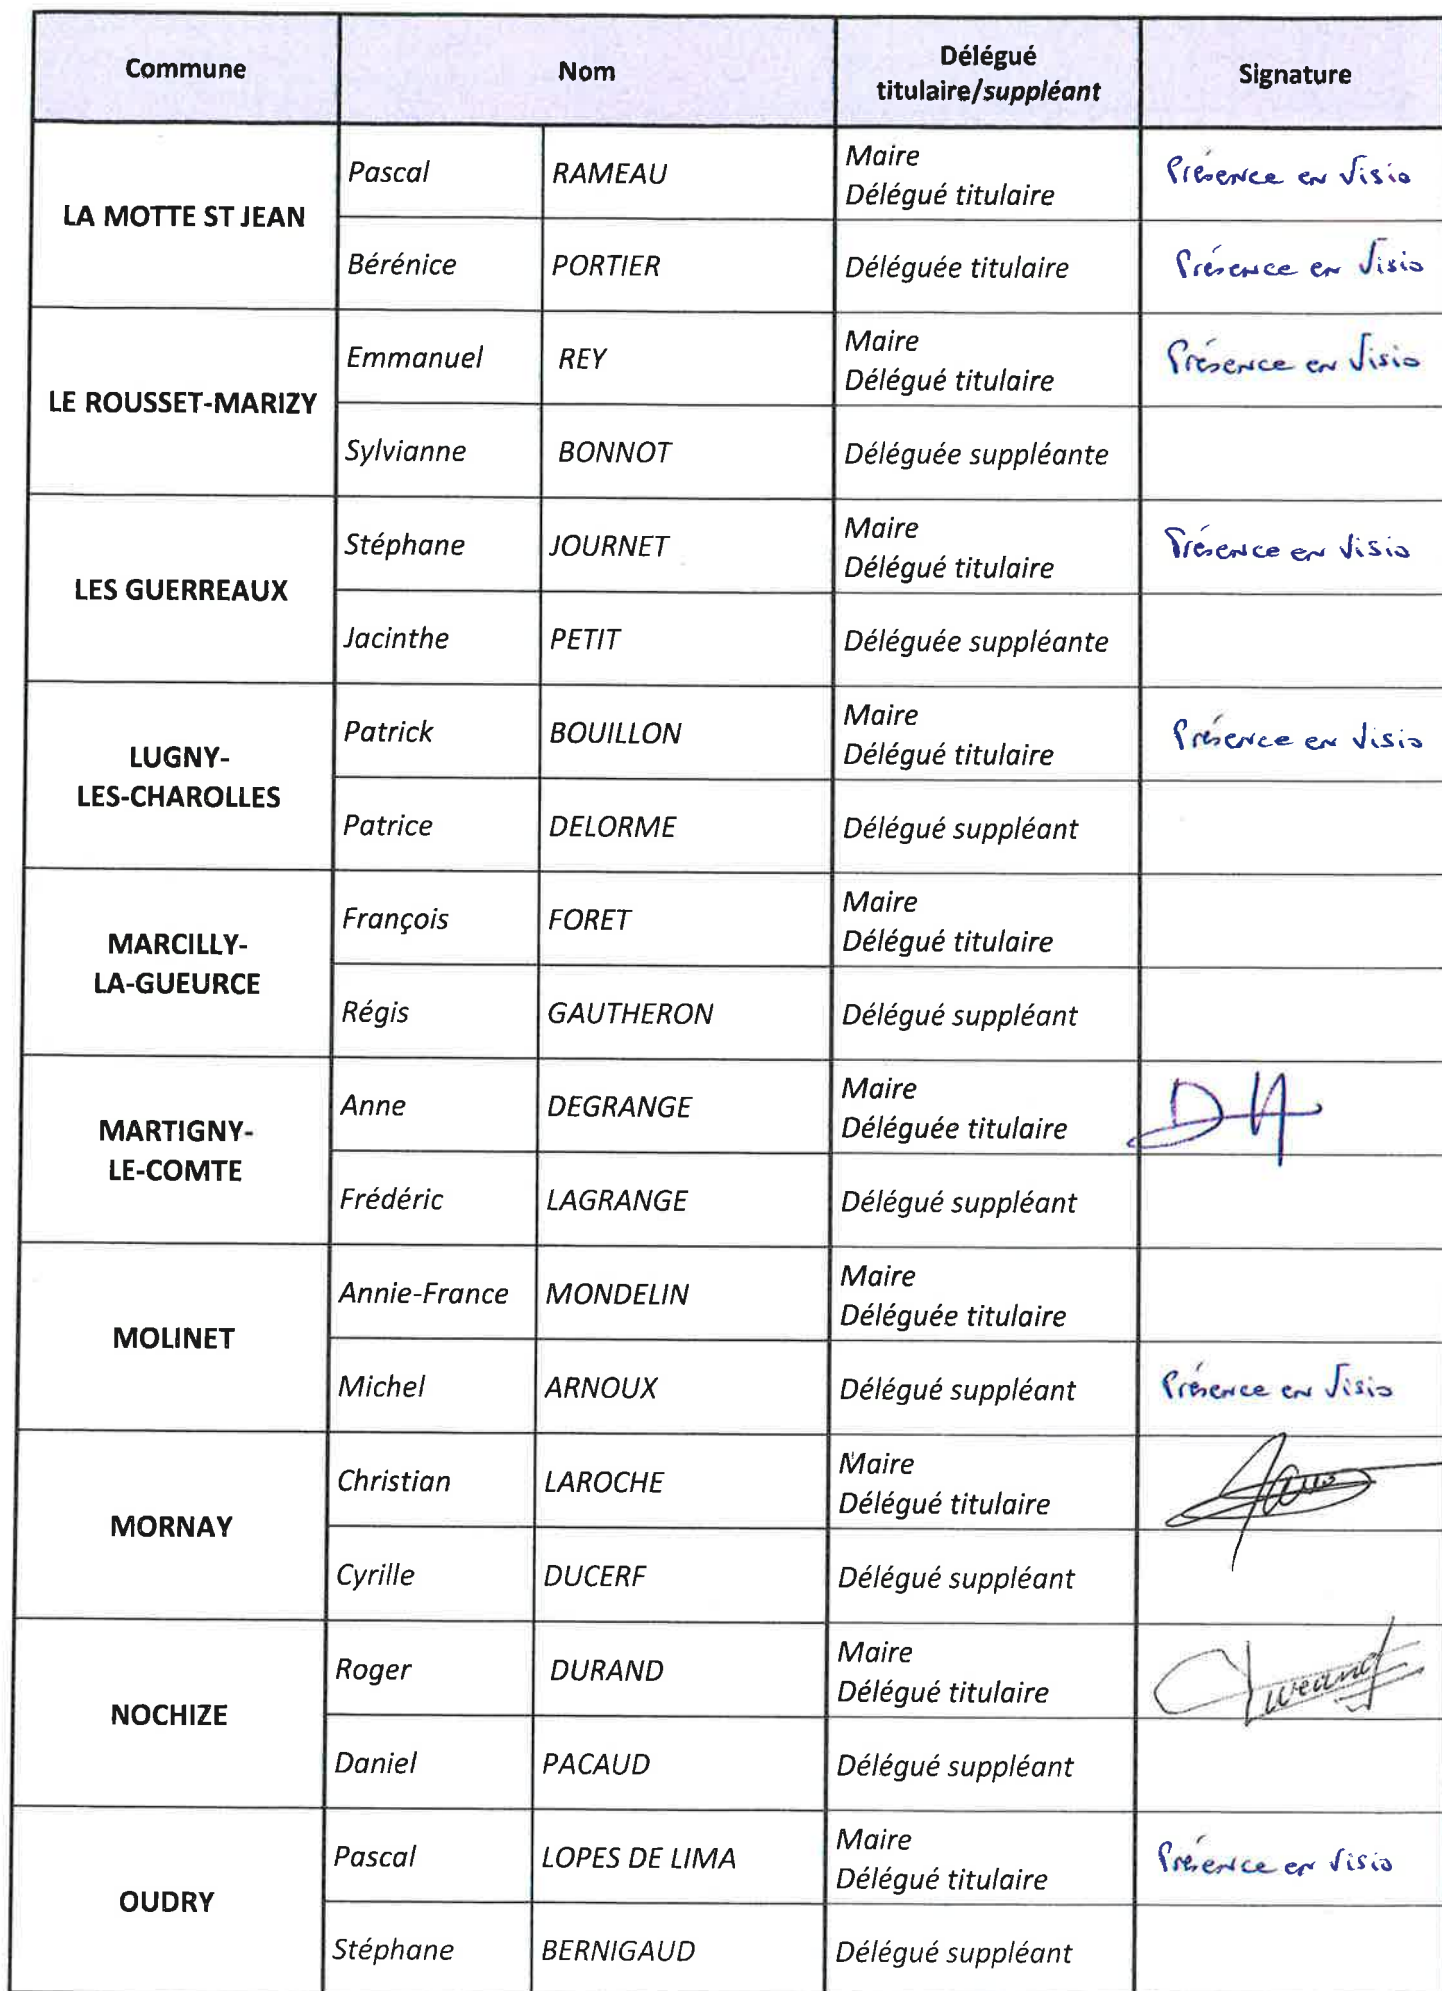 Commune Nom Délégué titulaire/suppléant Signature
LA MOTTE ST JEAN
Pascal RAMEAU Maire Délégué titulaire Présence en Visio
Bérénice PORTIER Déléguée titulaire Présence en Visio
LE ROUSSET-MARIZY
Emmanuel REY Maire Délégué titulaire Présence en Visio
Sylvianne BONNOT Déléguée suppléante
LES GUERREAUX
Stéphane JOURNET Maire Délégué titulaire Présence en Visio
Jacinthe PETIT Déléguée suppléante
LUGNY-
LES-CHAROLLES
Patrick BOUILLON Maire Délégué titulaire Présence en Visio
Patrice DELORME Délégué suppléant
MARCILLY-
LA-GUEURCE
François FORET Maire Délégué titulaire
Régis GAUTHERON Délégué suppléant
MARTIGNY-
LE-COMTE
Anne DEGRANGE Maire Déléguée titulaire
Frédéric LAGRANGE Délégué suppléant
MOLINET
Annie-France MONDELIN Maire Déléguée titulaire
Michel ARNOUX Délégué suppléant Présence en Visio
MORNAY
Christian LAROCHE Maire Délégué titulaire
Cyrille DUCERF Délégué suppléant
NOCHIZE
Roger DURAND Maire Délégué titulaire
Daniel PACAUD Délégué suppléant
OUDRY
Pascal LOPES DE LIMA Maire Délégué titulaire Présence en Visio
Stéphane BERNIGAUD Délégué suppléant